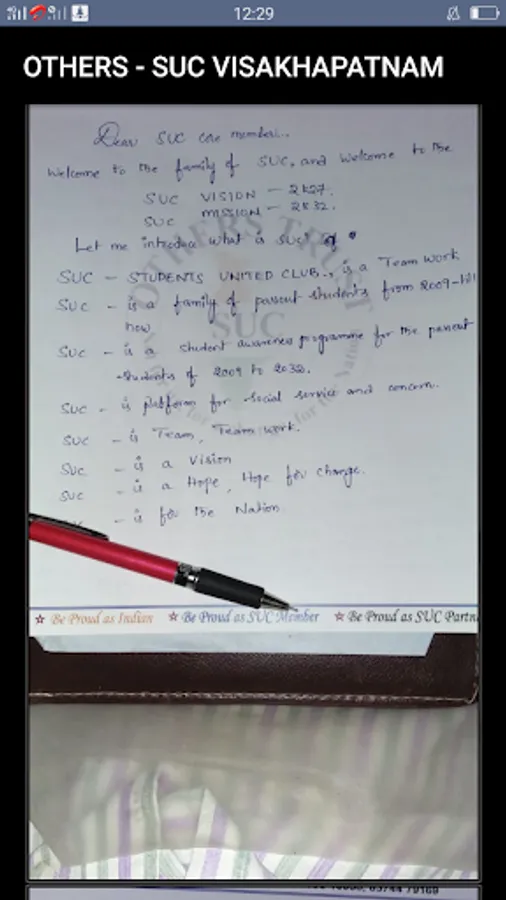 12:29
OTHERS - SUC VISAKHAPATNAM
Dear SUC core member...
Welcome to the family of SUC, and Welcome to the
SUC VISION - 2k27.
SUC MISSION - 2k32.
Let me introduce what is SUC? of
SUC - STUDENTS UNITED CLUB., is a Team work.
SUC - is a family of passout students from 2009-till
now
SUC - is a student awareness programme for the passout
students of 2009 to 2032.
SUC - is platform for social service and concern.
SUC - is Team, Team work.
SUC - is a Vision
SUC - is a Hope, Hope for change.
- is for the Nation
OTHERS TRUST
SUC
for the Nation
Be Proud as Indian Be Proud as SUC Member Be Proud as SUC Partn